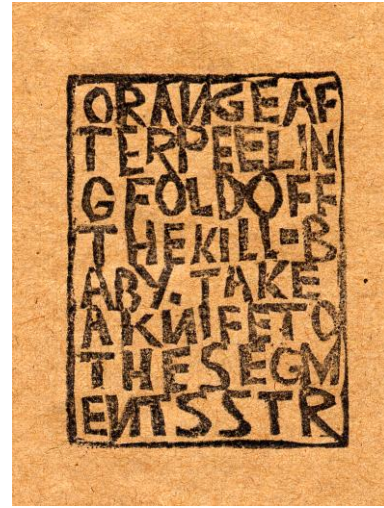 ORANGEAF
TERPEELIN
GFOLDOFF
THEKILL-B
ABY. TAKE
AKNIFETO
THESEGM
ENTSSTR